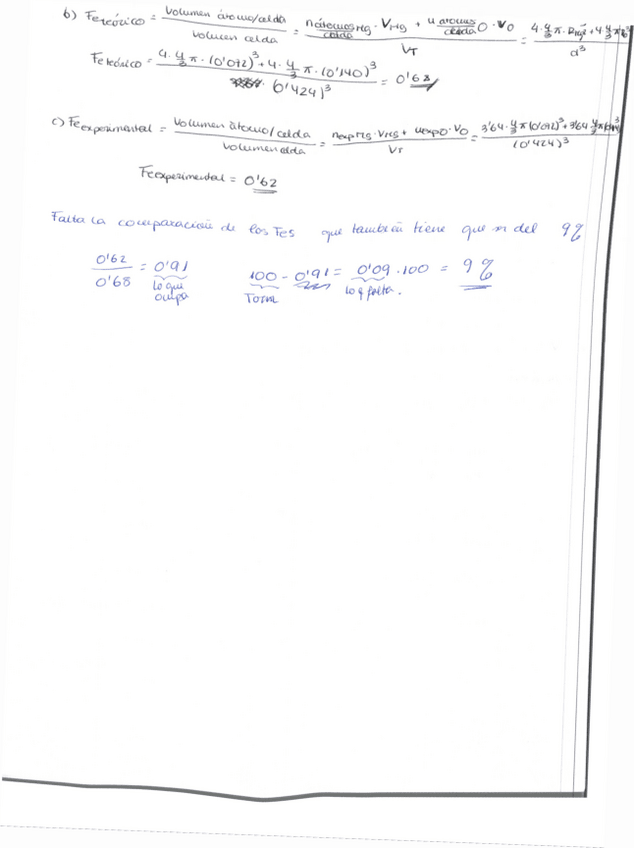 b) Fe teórico = Volumen átomo/celda / Volumen celda = n átomos Mg/celda · VMg + 4 átomos/celda O · VO / VT = 4 · 4/3 π · RMg³ + 4 · 4/3 π / a³
Fe teórico = 4 · 4/3 π · (0'072)³ + 4 · 4/3 π · (0'140)³ / (0'424)³ = 0'68
c) Fe experimental = Volumen átomo/celda / Volumen celda = nexp Mg · VMg + nexp O · VO / VT = 3'64 · 4/3 π (0'072)³ + 3'64 · 4/3 π / (0'424)³
Fe experimental = 0'62
Falta la comparación de los Fes que también tiene que ser del 9%
0'62 / 0'68 = 0'91 100 - 0'91 = 0'09 · 100 = 9%
lo que ocupa Total lo q falta.